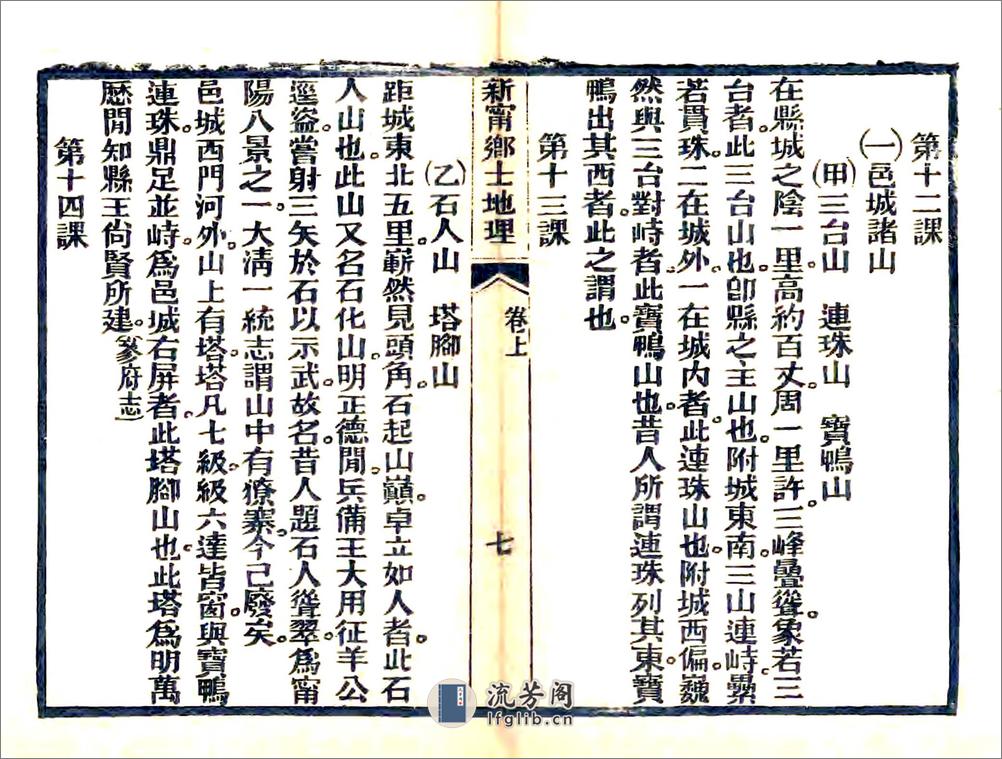 第十二課
(一)邑城諸山
(甲)三台山 連珠山 寶鴨山
在縣城之陰一里高約百丈周一里許。三峰疊聳。象若三
台者。此三台山也。卽縣之主山也。附城東南。三山連峙。纍
若貫珠。二在城外。一在城內者。此連珠山也。附城西偏。巍
然與三台對峙者。此寶鴨山也。昔人所謂連珠列其東。寶
鴨出其西者。此之謂也
第十三課
新甯鄉土地理 卷上 七
(乙)石人山 塔腳山
距城東北五里。嶄然見頭角。石起山巔。卓立如人者。此石
人山也。此山又名石化山。明正德閒。兵備王大用征羊公
逕盜。嘗射三矢於石以示武。故名。昔人題石人聳翠。爲甯
陽八景之一。大淸一統志謂山中有獠寨。今已廢矣。
邑城西門河外。山上有塔。塔凡七級。級六達皆窗。與寶鴨
連珠鼎足並峙。爲邑城右屏者。此塔腳山也。此塔爲明萬
歷閒知縣王尙賢所建。(叅府志)
第十四課
流芳阁
lfglib.cn